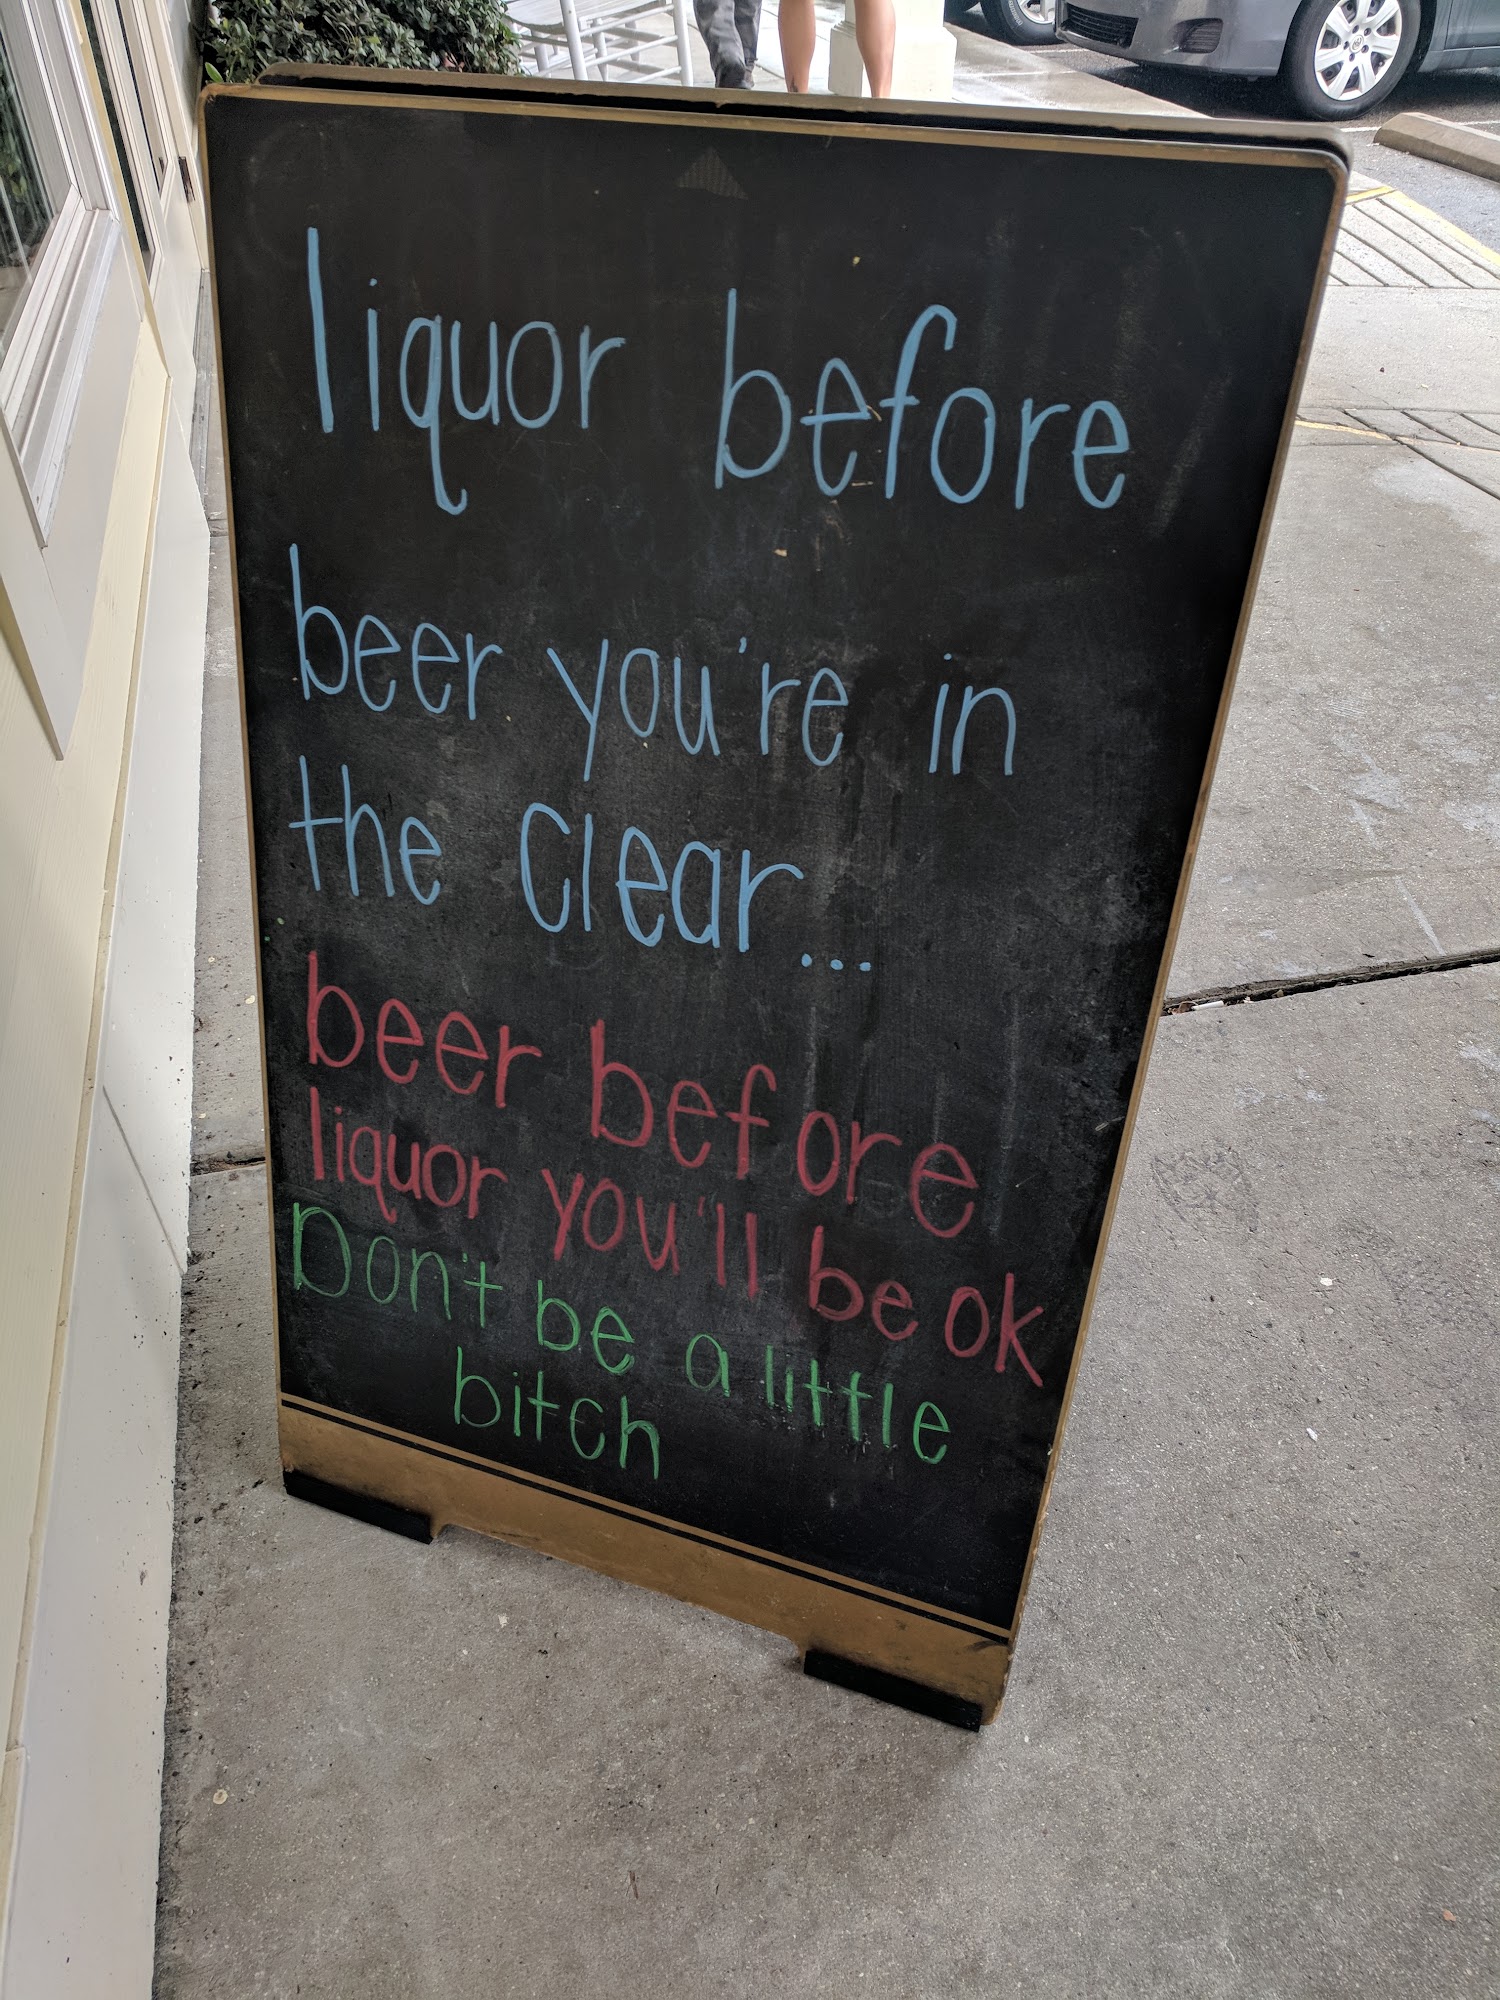 liquor before
beer you're in
the clear...
beer before
liquor you'll be ok
Don't be a little
bitch